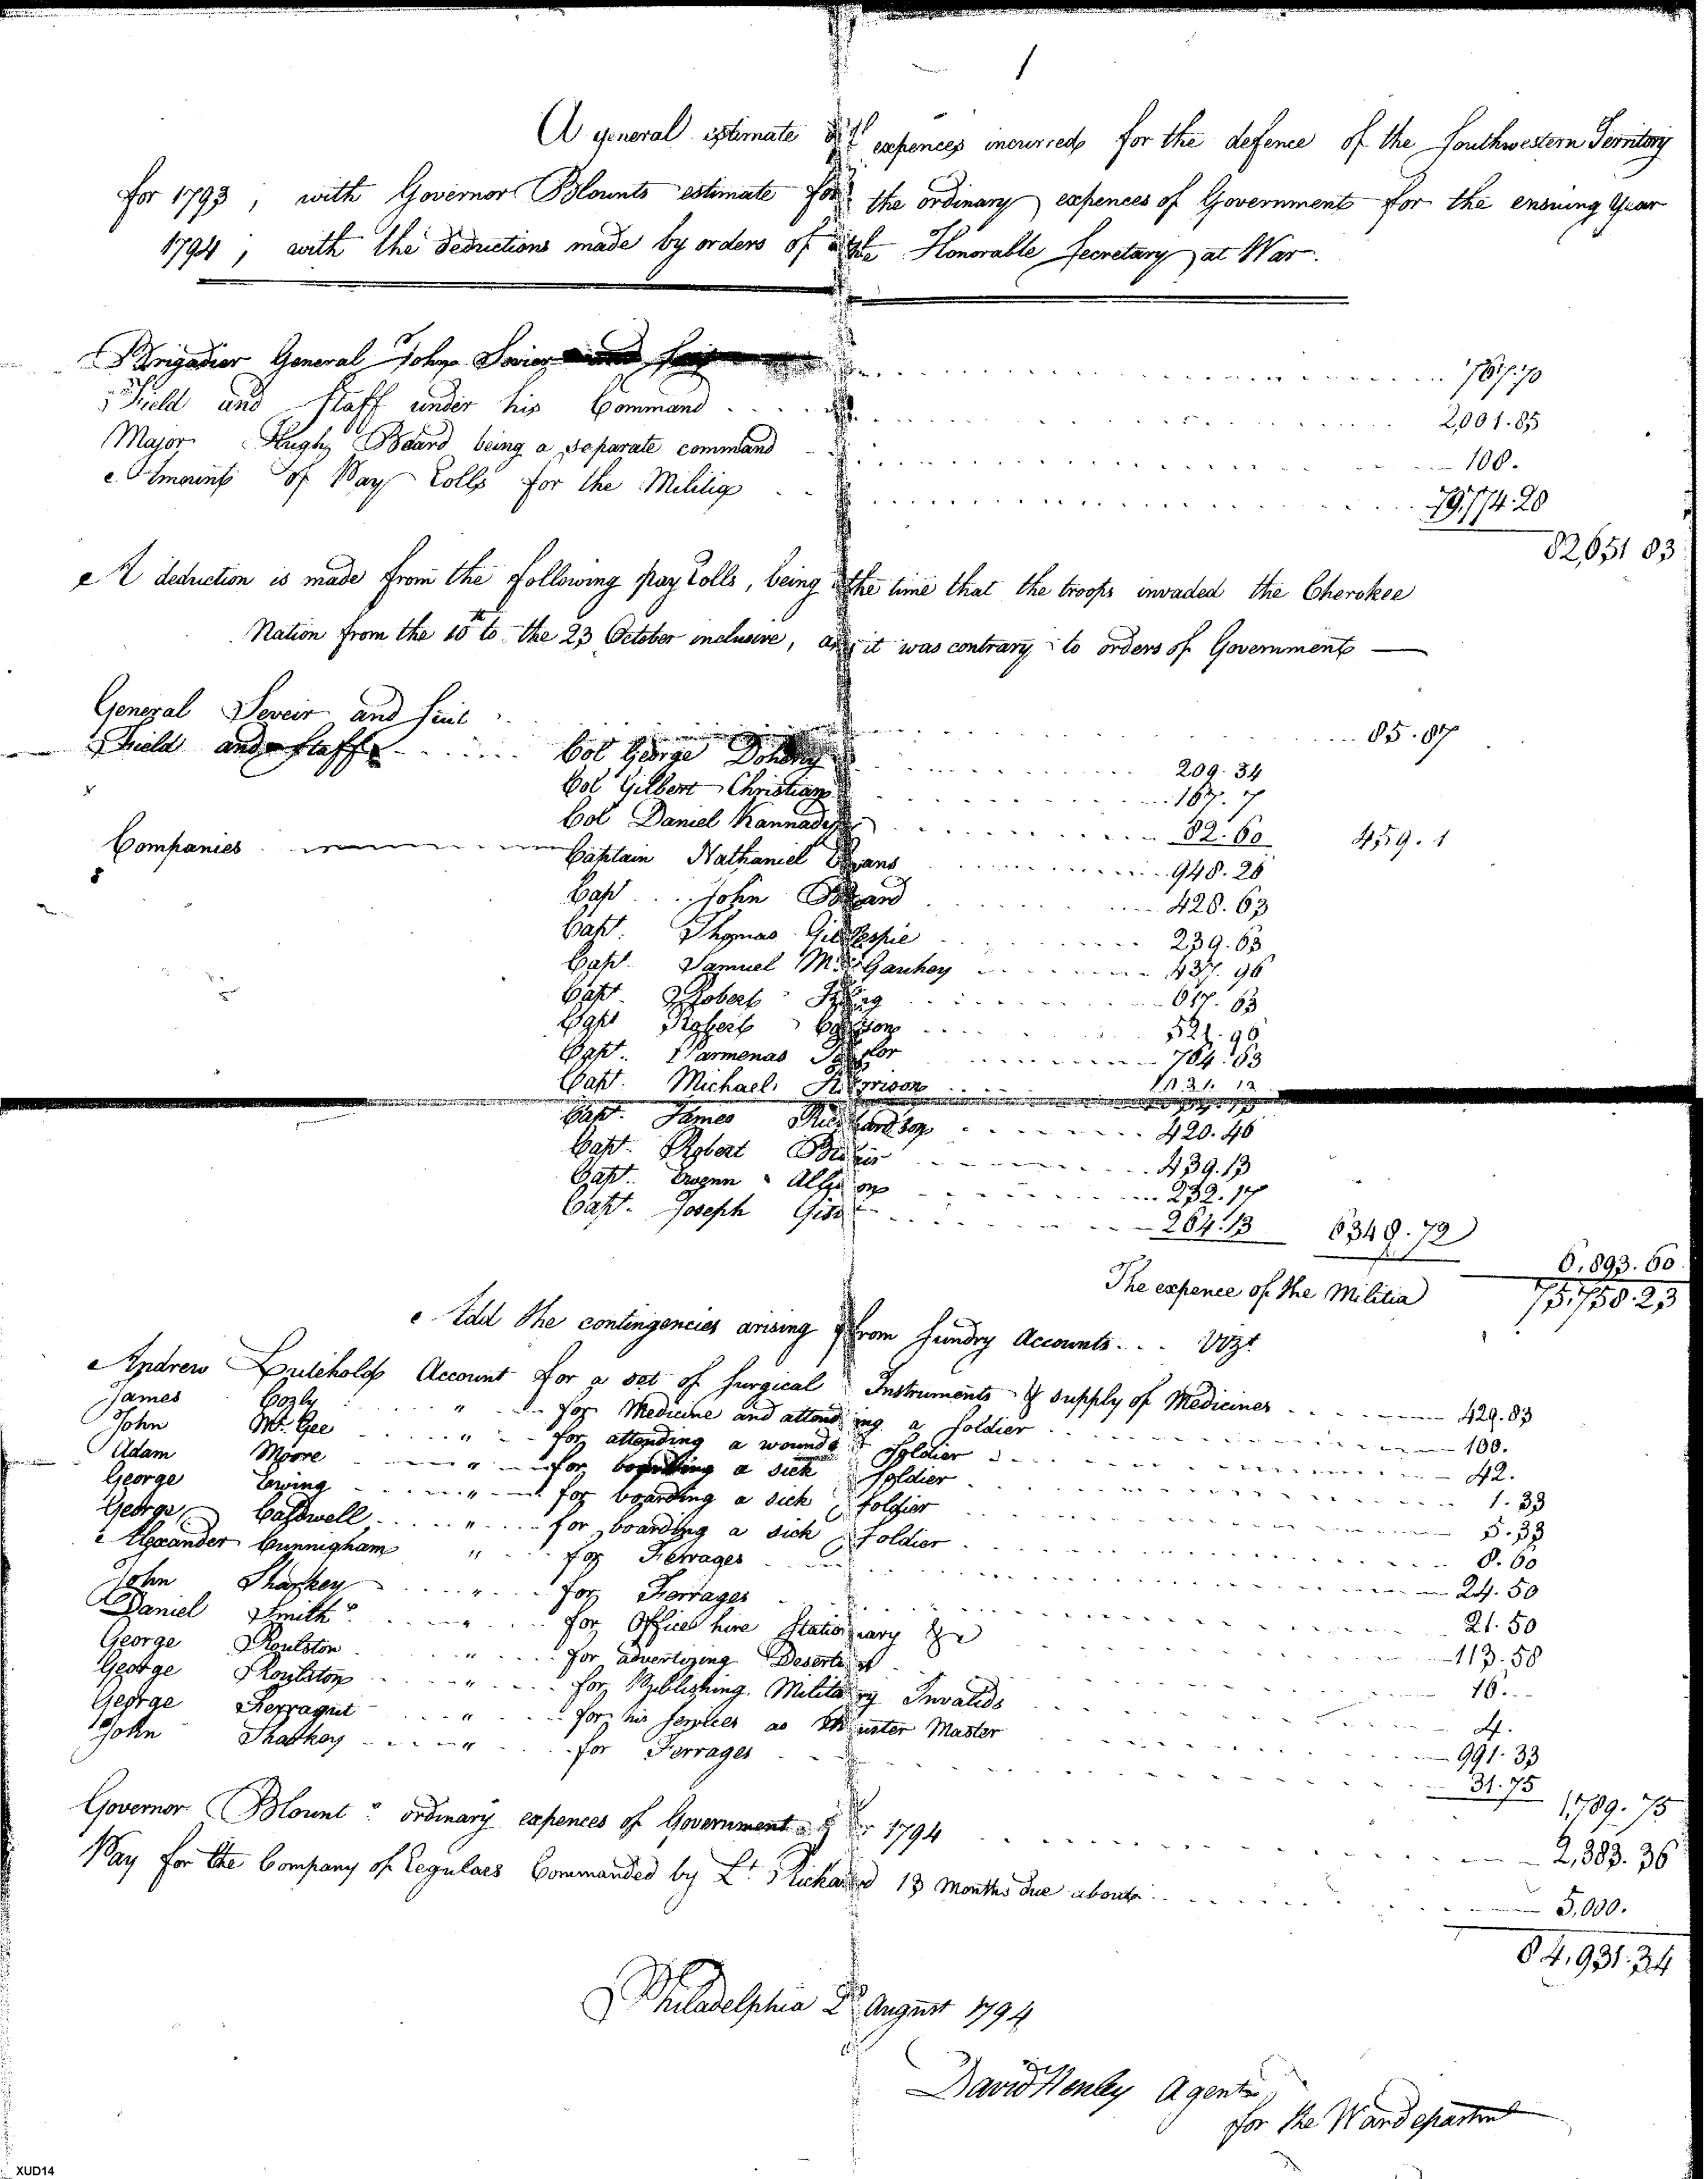 1
A general estimate of expences incurred for the defence of the Southwestern Territory
for 1793, with Governor Blounts estimate for the ordinary expences of Government for the ensuing year
1794, with the deductions made by orders of the Honorable Secretary at War.
Brigadier General John Sevier 767.70
Field and Staff under his Command 2,001.85
Major Hugh Beard being a separate command 108.
Amount of Pay Rolls for the Militia 79,774.28
82,651 83
A deduction is made from the following pay Rolls, being the time that the troops invaded the Cherokee
Nation from the 10th to the 23 October inclusive, as it was contrary to orders of Government
General Seveir and Suit 85.87
Field and Staff Col George Doherty 209.34
Col Gilbert Christian 167.7
Col Daniel Kannady 82.60 459.1
Companies Captain Nathaniel Evans 948.26
Capt John Beard 428.63
Capt. Thomas Gillespie 239.63
Capt. Samuel McGauhey 437.96
Capt. Robert King 617.63
Capt Robert 521.96
Capt. Parmenas Taylor 764.63
Capt. Michael Harrison
Capt. James Richardson 420.46
Capt. Robert 439.13
Capt. Allison 232.17
Capt. Joseph Gist 264.13 6348.72
6,893.60
The expence of the Militia 75,758.23
Add the contingencies arising from Sundry Accounts... Vizt
Andrew Account for a set of Surgical Instruments & supply of Medicines 429.83
James Cozby " for Medicine and attending a Soldier 100.
John McGee " for attending a wounded Soldier 42.
Adam Moore " for boarding a sick Soldier 1.33
George Ewing " for boarding a sick Soldier 5.33
George Caldwell " for boarding a sick Soldier 8.60
Alexander Cunnigham " for Ferrages 24.50
John Sharkey " for Ferrages 21.50
Daniel Smith " for Office hire Stationary &c 113.58
George Roulston " for advertizing Deserters 16.
George Roulston " for Publishing Military Invalids 4.
George Ferragut " for his Services as Muster Master 991.33
John Sharkey " for Ferrages 31.75
1,789.75
Governor Blount's ordinary expences of Government for 1794 2,383.36
Pay for the Company of Regulars Commanded by Lt. Rickard 13 Months due about 5,000.
84,931.34
Philadelphia 2d August 1794
David Henley Agent
for the Wardepartmt
XUD14